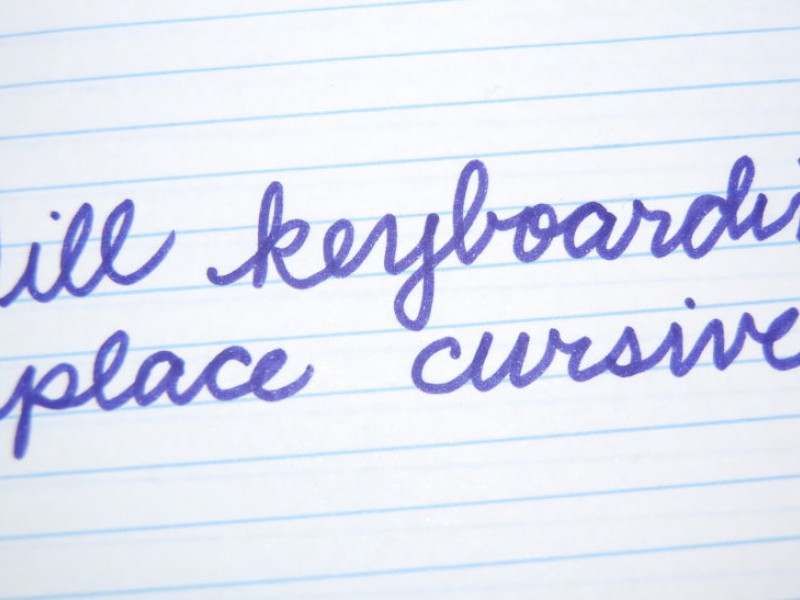 ill keyboardi
place cursive